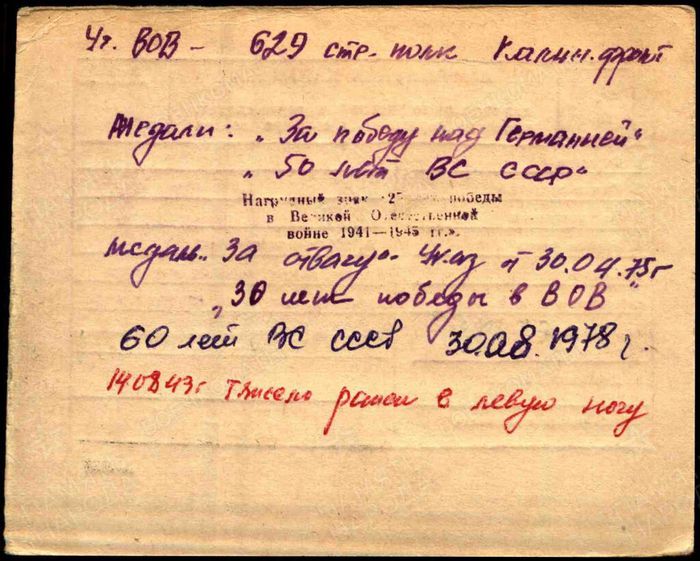 Уч. ВОВ - 629 стр. полк Калин. фронт
Медали: "За победу над Германией"
"50 лет ВС СССР"
Нагрудный знак «25 лет победы
в Великой Отечественной
войне 1941—1945 гг.».
медаль "За отвагу" Указ от 30.04.75 г
"30 лет победы в ВОВ"
60 лет ВС СССР 30.08.1978 г.
14.08.43 г тяжело ранен в левую ногу